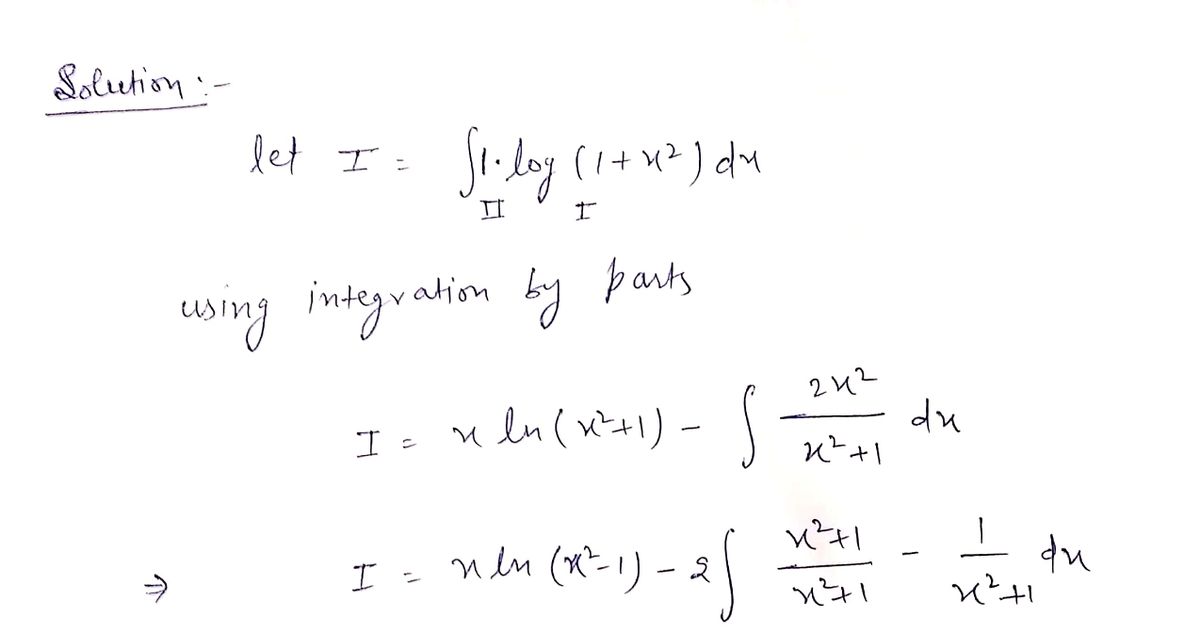 Solution :-
let I = ∫1·log (1+x²) dx
II I
using integration by parts
I = x ln(x²+1) - ∫ 2x²/(x²+1) dx
⇒ I = x ln (x²-1) - 2∫ (x²+1)/(x²+1) - 1/(x²+1) dx